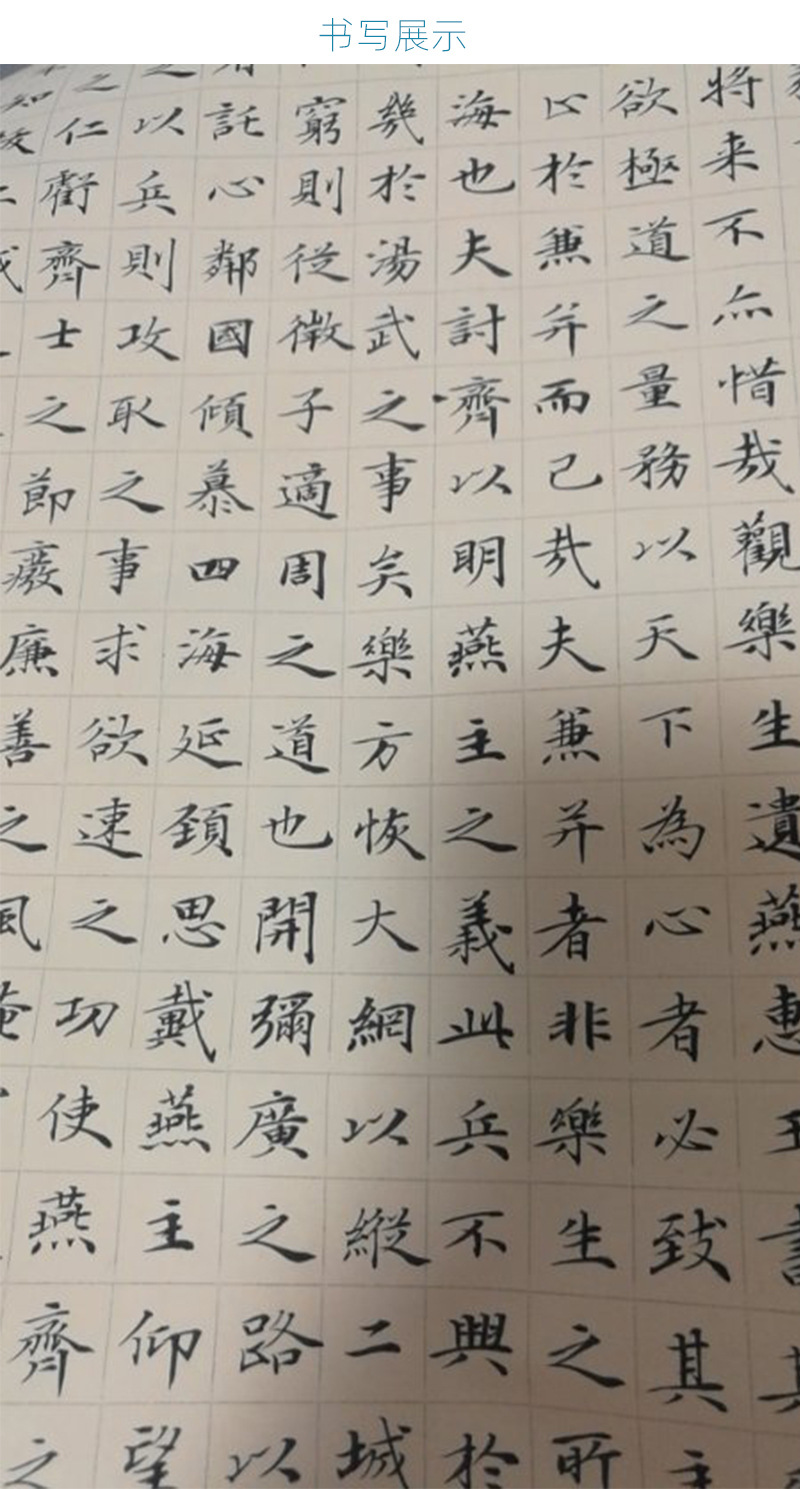 书写展示
将来不亦惜哉觀樂生遺燕惠王書其
欲極道之量務以天下為心者必致其主
止於兼并而已哉夫兼并者非樂生之所
海也夫討齊以明燕主之義此兵不興於
幾於湯武之事矣樂方恢大綱以縱二城
窮則從微子適周之道也開彌廣之路以
者託心鄰國傾慕四海延頸思戴燕主仰望
之以兵則攻取之事求欲速之功使燕齊之
之仁虧齊士之節廢廉善之風掩
知